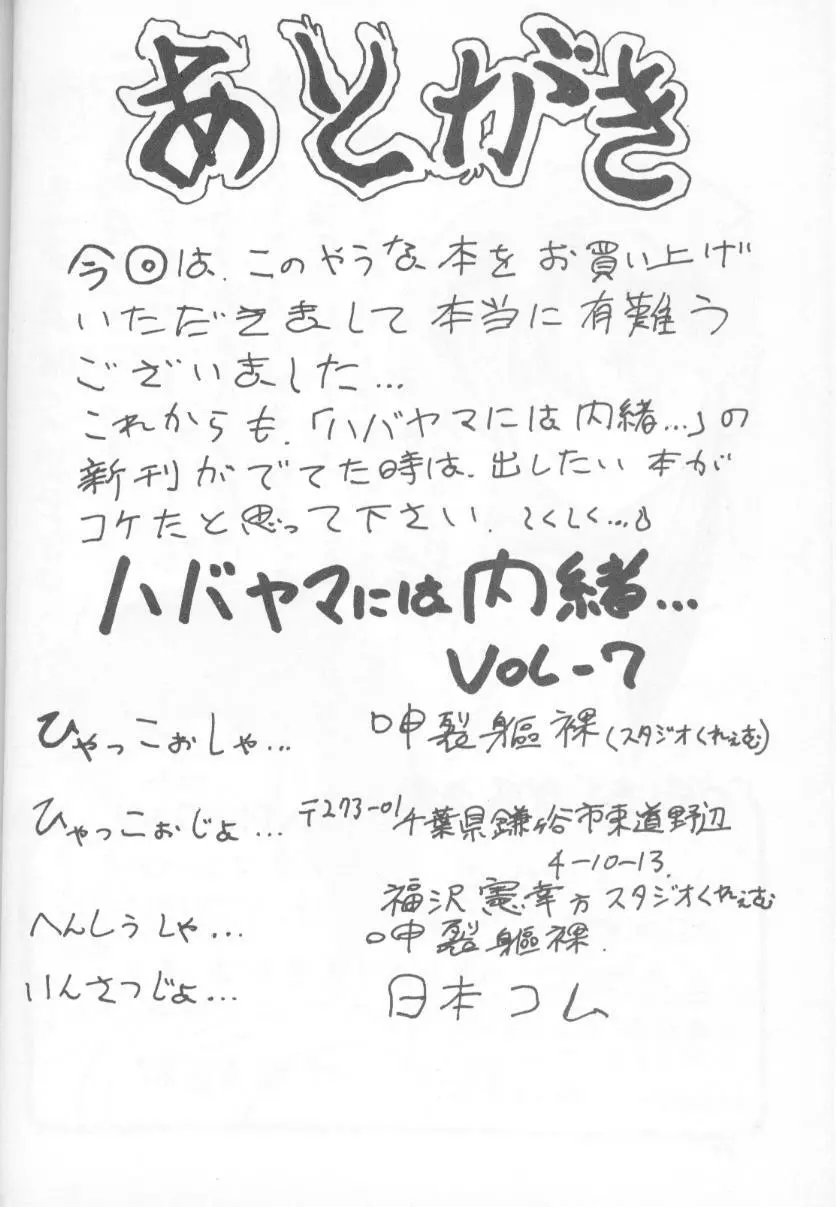 あとがき
今回は、このやうな本をお買い上げ
いただきまして本当に有難う
ございました…
これからも、「ハバヤマには内緒…」の
新刊がでてた時は、出したい本が
コケたと思って下さい、しくしく…
ハバヤマには内緒…
VOL-7
ひゃっこぉしゃ… 呻裂軀裸(スタジオくれえむ)
ひゃっこぉじょ… 〒273-01千葉県鎌ヶ谷市東道野辺
4-10-13.
福沢憲幸方スタジオくれえむ
へんしうしゃ… 呻裂軀裸.
いんさつじょ… 日本コム